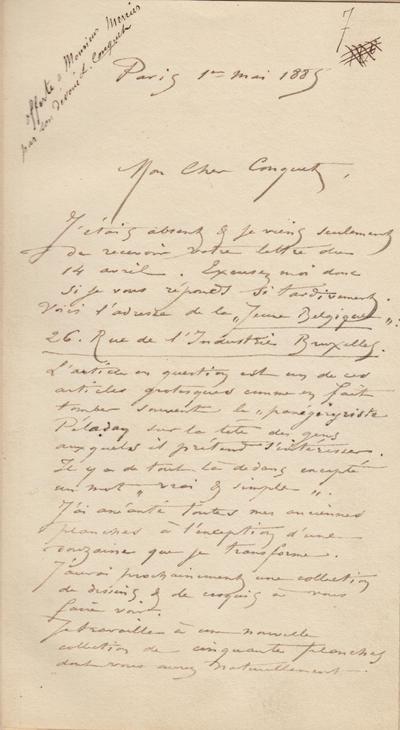 offerte à Monsieur Mercier
par son dévoué L. Conquet
7
Paris 1er mai 1885
Mon Cher Conquet,
J'étais absent & je viens seulement
de recevoir votre lettre du
14 avril. Excusez moi donc
si je vous réponds si tardivement.
Voici l'adresse de la „Jeune Belgique„:
26. Rue de l'Industrie Bruxelles.
L'article en question est un de ces
articles grotesques comme en fait
tomber souvent le „panégyriste
Péladan sur la tête des gens
auxquels il prétend s'intéresser.
Il y a de tout là dedans excepté
un mot „vrai & simple„.
J'ai anéanti toutes mes anciennes
planches à l'exception d'une
douzaine que je transforme.
J'aurai prochainement une collection
de dessins & de croquis à vous
faire voir.
Je travaille à une nouvelle
collection de cinquante planches
dont vous aurez naturellement